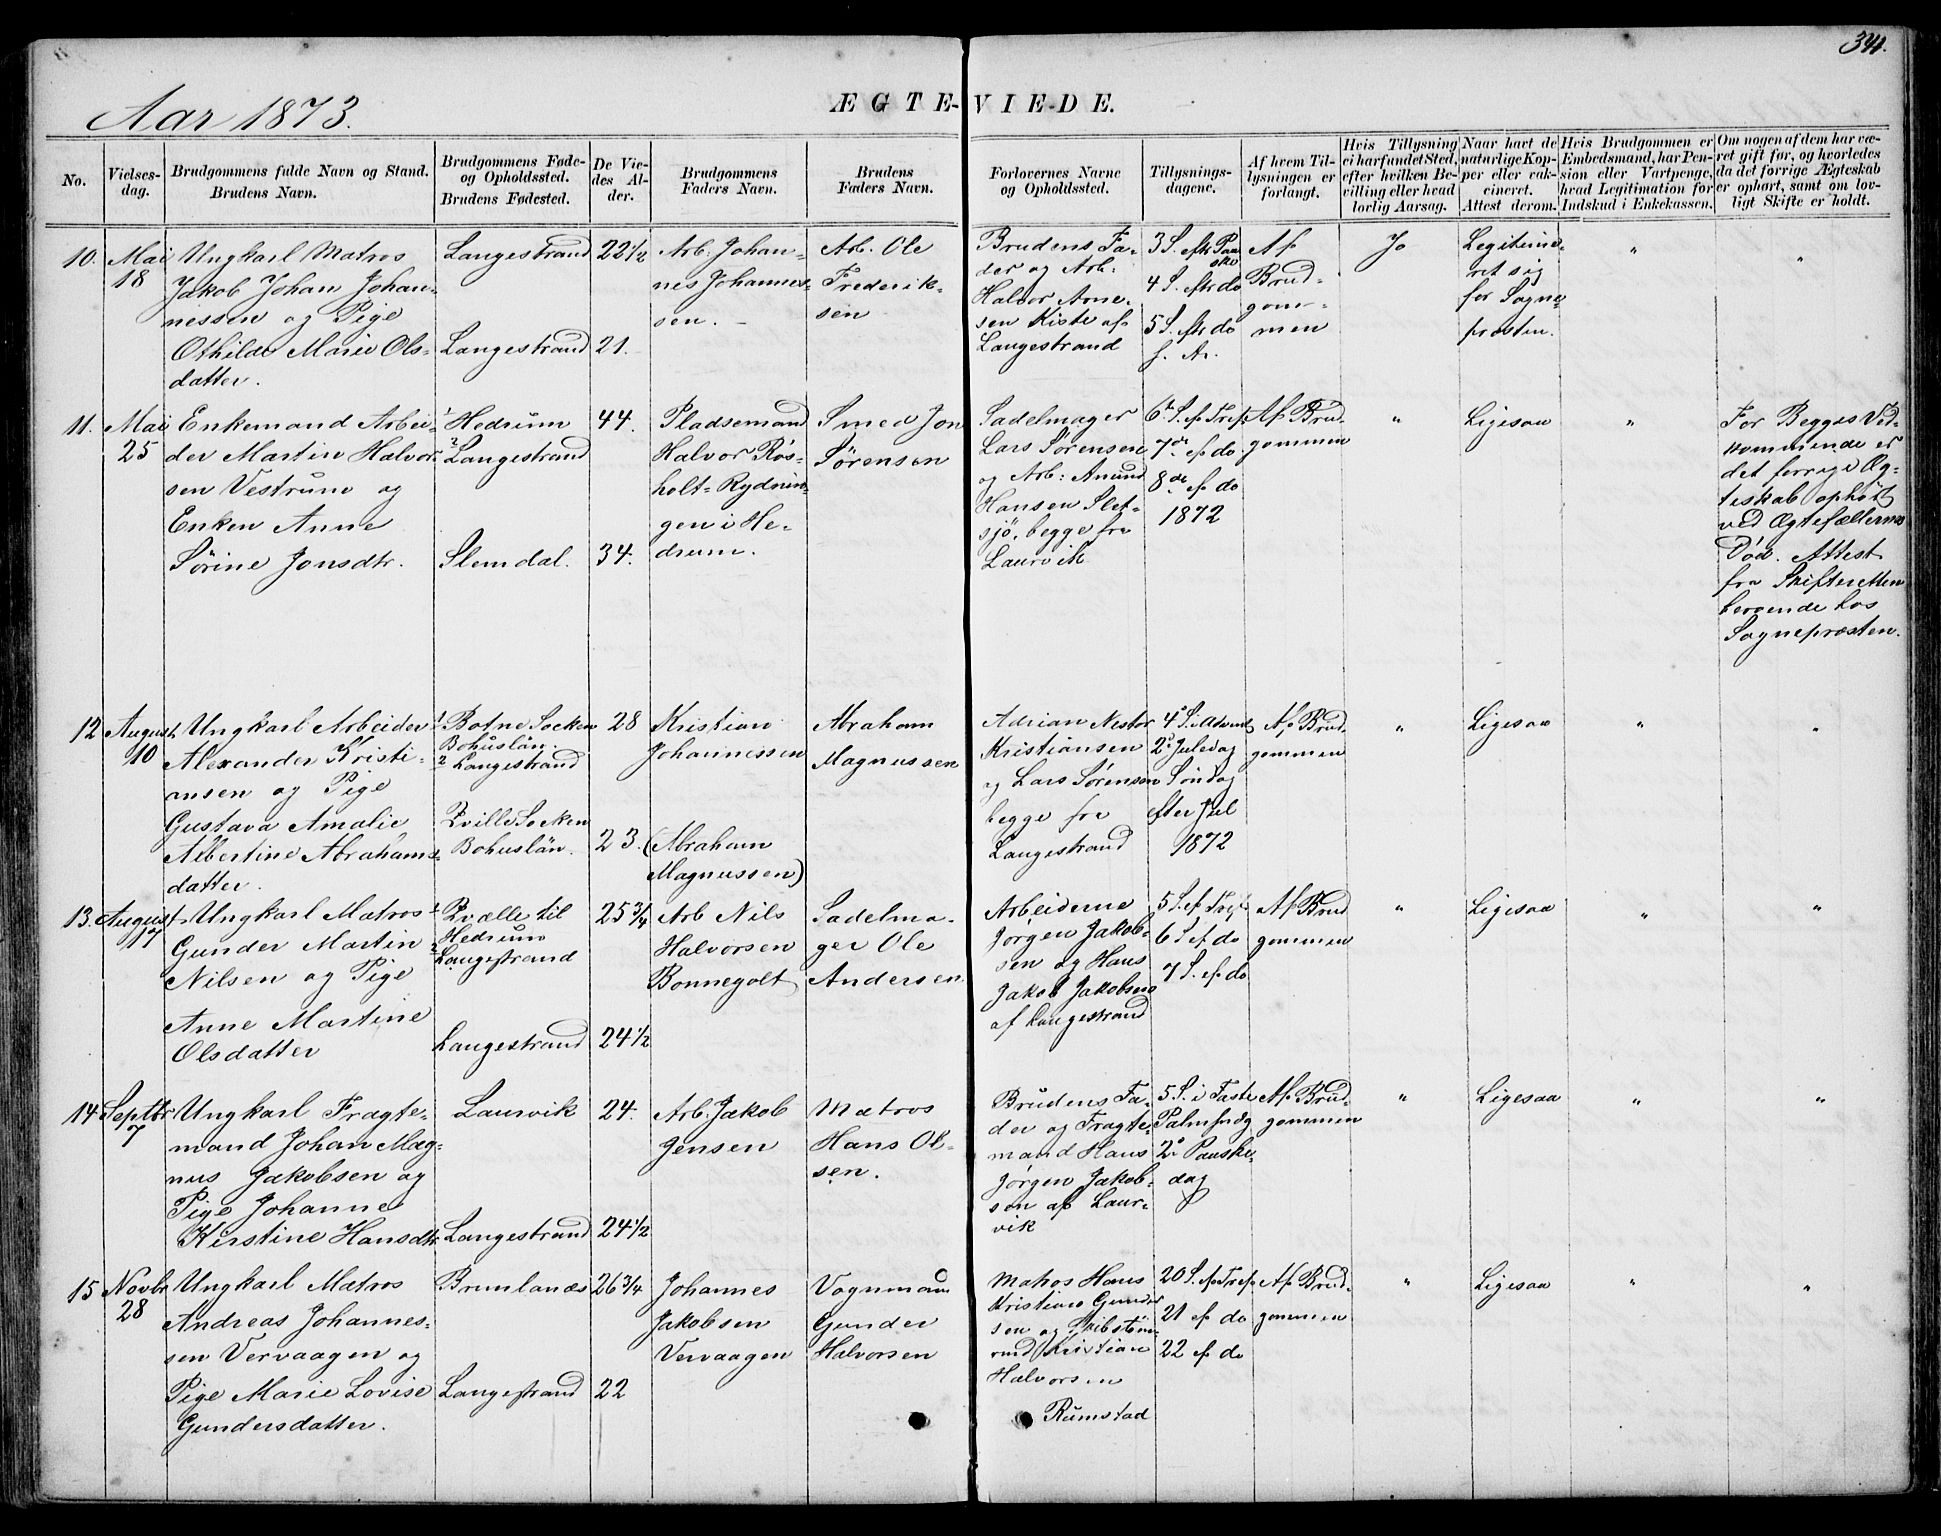 341.
Aar 1873.
ÆGTE-VIEDE.
No.
Vielses-
dag.
Brudgommens fulde Navn og Stand.
Brudens Navn.
Brudgommens Føde-
og Opholdssted.
Brudens Fødested.
De Vie-
des Al-
der.
Brudgommens
Faders Navn.
Brudens
Faders Navn.
Forlovernes Navne
og Opholdssted.
Tillysnings-
dagene.
Af hvem Til-
lysningen er
forlangt.
Hvis Tillysning
ei har fundet Sted,
efter hvilken Be-
villing eller hvad
lovlig Aarsag.
Naar havt de
naturlige Kop-
per eller vak-
cineret.
Attest derom.
Hvis Brudgommen er
Embedsmand, har Pen-
sion eller Vartpenge,
hvad Legitimation for
Indskud i Enkekassen.
Om nogen af dem har væ-
ret gift før, og hvorledes
da det forrige Ægteskab
er ophørt, samt om lov-
ligt Skifte er holdt.
10.
Mai
18
Ungkarl Matros
Jakob Johan Johan-
nessen og Pige
Othilde Marie Ols-
datter.
Langestrand
Langestrand
22 1/2
21.
Arb. Johan-
nes Johannes-
sen.
Arb. Ole
Frederik-
sen
Brudens Fa-
der og Arb:
Halvor Arne-
sen Kiste af
Langestrand
3 S. eftr Paa
ske
4 S. eftr do
5 S. eftr do
f. Ar.
Af
Brud-
gom-
men
Jo
Legitime-
ret sig
for Sogne-
præsten.
"
"
11.
Mai
25
Enkemand Arbei-
der Martin Halvor-
sen Vestrum og
Enken Anne
Sørine Jonsdtr.
1 Hedrum
2 Langestrand
Slemdal.
44.
34.
Pladsemand
Halvor Røs-
holt-Rydnin-
gen i He-
drum.
Smed Jon
Sørensen
Sadelmager
Lars Sørensen
og Arb: Anund
Hansen Slet-
sjö, begge fra
Laurvik
6te S. ef Tref.
7de ef do
8de ef do
1872
Af Brud-
gommen
"
Ligesaa
"
For Begges Ved-
kommende er
det forrige Æg-
teskab ophört
ved Ægtefællernes
Död. Attest
fra Skifteretten
beroende hos
Sognepræsten.
12
August
10
Ungkarl Arbeider
Alexander Kristi-
ansen og Pige
Gustava Amalie
Albertine Abrahams-
datter.
1 Botne Socken
Bohuslän.
2 Langestrand
Qville Socken
Bohuslän.
28
23.
Kristian
Johannessen
(Abraham
Magnussen)
Abraham
Magnussen
Adrian Nestor
Kristiansen
og Lars Sørensen
begge fra
Langestrand
4° S. i Advent
2° Juledag
Søndag
efter Jul
1872
Af Brud-
gommen
"
Ligesaa
"
"
13.
August
17
Ungkarl Matros
Gunder Martin
Nilsen og Pige
Anne Martine
Olsdatter
1 Qvælle til
Hedrum
2 Langestrand
Langestrand
25 3/4
24 1/2
Arb Nils
Halvorsen
Bonnegolt
Sadelma-
ger Ole
Andersen
Arbeiderne
Jørgen Jakob-
sen og Hans
Jakob Jakobsen
af Langestrand
5 S. ef Tref
6 S ef do
7 S. ef do
Af Brud
gommen
"
Ligesaa
"
"
14
Septbr
7
Ungkarl Fragte-
mand Johan Mag-
nus Jakobsen og
Pige Johanne
Kirstine Hansdtr
Laurvik
Langestrand
24.
24 1/2
Arb. Jakob
Jensen
Matros
Hans Ol-
sen.
Brudens Fa-
der og Fragte-
mand Hans
Jørgen Jakob-
sen af Laur-
vik
5 S. i Faste
Palmsndg
2° Paaske-
dag
Af Brud-
gommen
"
Ligesaa
"
"
15
Novbr
28
Ungkarl Matros
Andreas Johannes-
sen Vervaagen og
Pige Marie Lovise
Gundersdatter.
Brunlanæs
Langestrand
26 3/4
22
Johannes
Jakobsen
Vervaagen
Vognmand
Gunder
Halvorsen
Matros Hans
Kristian Gunder
sen og Skibstöm
mnd Kristian
Halvorsen
Rumstad
20 S. ef Tref.
21 ef do
22 ef do
Af Brud-
gommen
"
Ligesaa
"
"